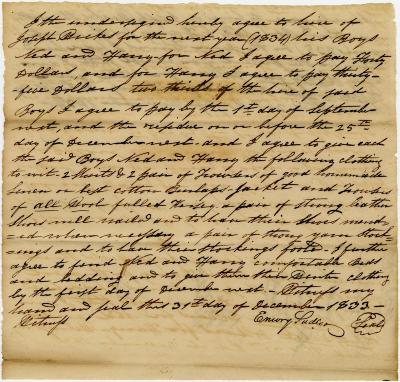 I the undersigned hereby agree to hire of
Joseph for the next year (1834) his Boys
Ned and Harry for Ned I agree to pay
Dollars, and for Harry I agree to pay thirty-
five Dollars two thirds of the hire of said
Boys I agree to pay by the 1st day of September
next, and the residue on or before the 25th
day of December next. and I agree to give each
the said Boys Ned and Harry the following clothing
to wit. 2 Shirts & 2 pair of Trowsers of good homemade
linen or best cotton Jacket and Trowsers
of all Wool fulled Kersey a pair of strong leather
Shoes well nailed and to have their Shoes mend-
ed when necessary a pair of yarn stock-
ings and to have their stockings footed. I further
agree to find Ned and Harry comfortable Beds
and bedding and to give them their Winter clothing
by the first day of December next - Witness my
hand and seal this 31st day of December 1833 -
Witness Emory Sadler Seal